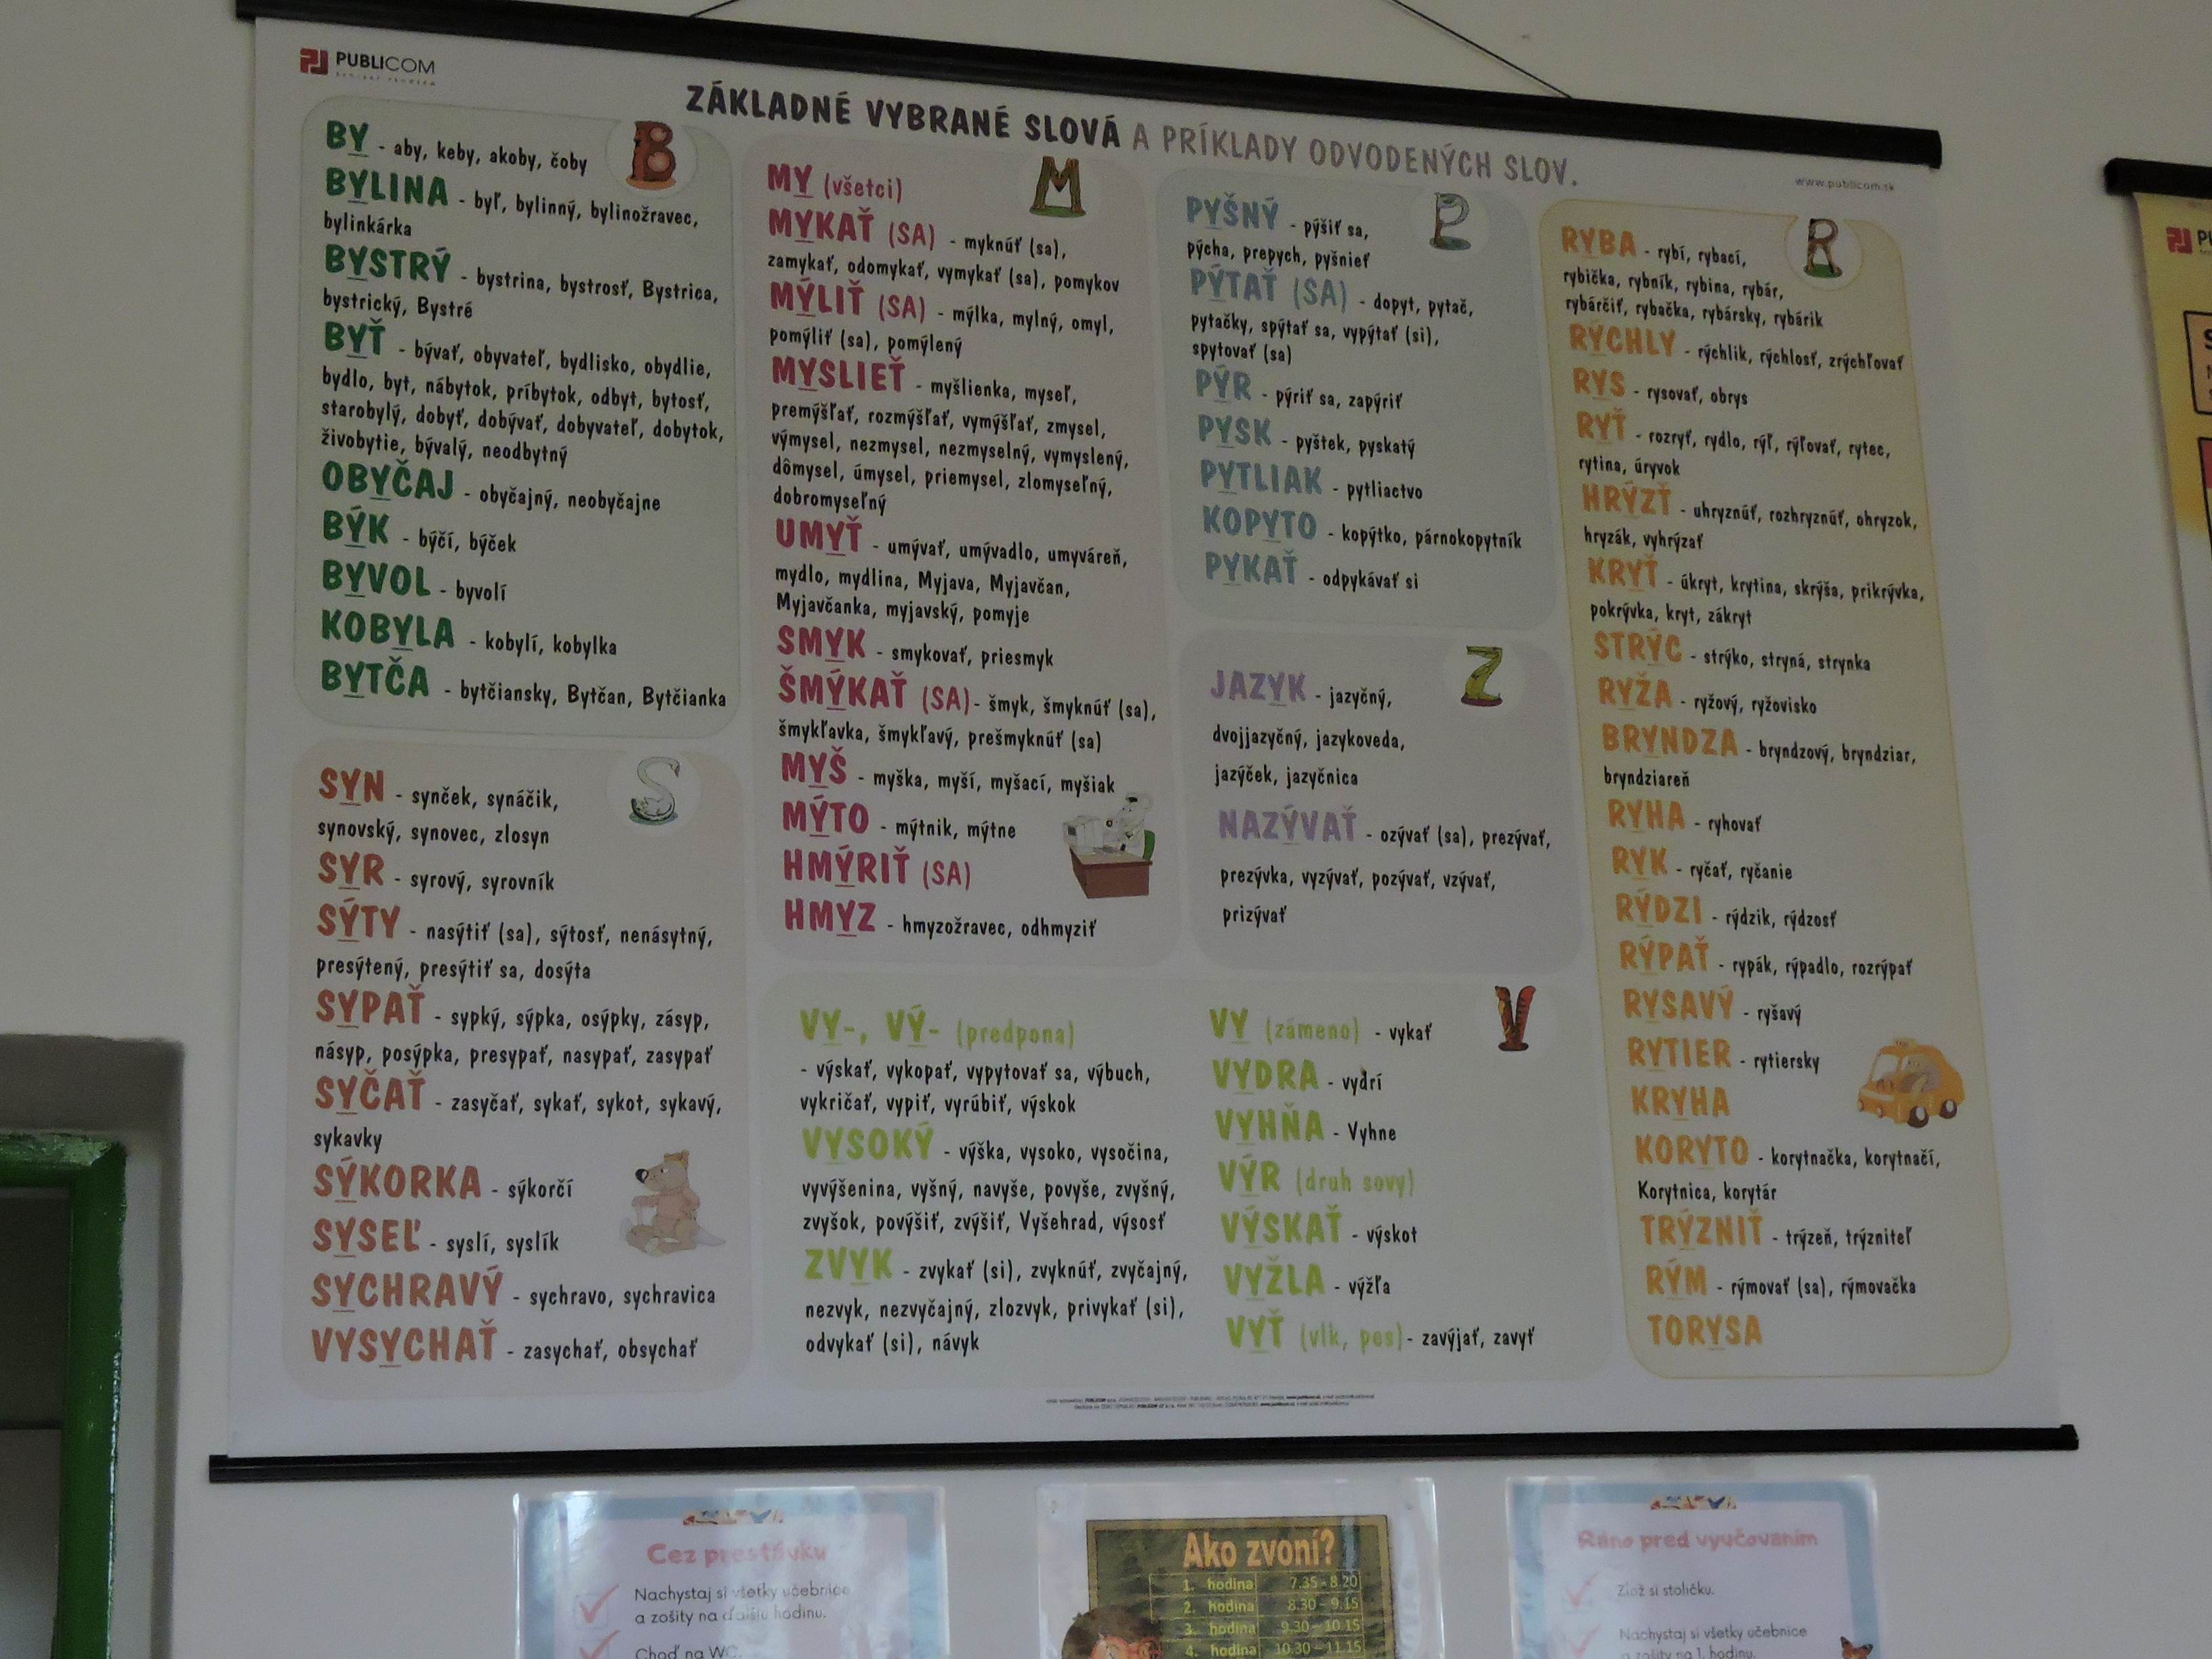 PUBLICOM
ZÁKLADNÉ VYBRANÉ SLOVÁ A PRÍKLADY ODVODENÝCH SLOV.
www.publicom.sk
B
BY - aby, keby, akoby, čoby
BYLINA - byľ, bylinný, bylinožravec,
bylinkárka
BYSTRÝ - bystrina, bystrosť, Bystrica,
bystrický, Bystré
BYŤ - bývať, obyvateľ, bydlisko, obydlie,
bydlo, byt, nábytok, príbytok, odbyt, bytosť,
starobylý, dobyť, dobývať, dobyvateľ, dobytok,
živobytie, bývalý, neodbytný
OBYČAJ - obyčajný, neobyčajne
BÝK - býčí, býček
BYVOL - byvolí
KOBYLA - kobylí, kobylka
BYTČA - bytčiansky, Bytčan, Bytčianka
S
SYN - synček, synáčik,
synovský, synovec, zlosyn
SYR - syrový, syrovník
SÝTY - nasýtiť (sa), sýtosť, nenásytný,
presýtený, presýtiť sa, dosýta
SYPAŤ - sypký, sýpka, osýpky, zásyp,
násyp, posýpka, presypať, nasypať, zasypať
SYČAŤ - zasyčať, sykať, sykot, sykavý,
sykavky
SÝKORKA - sýkorčí
SYSEĽ - syslí, syslík
SYCHRAVÝ - sychravo, sychravica
VYSYCHAŤ - zasychať, obsychať
M
MY (všetci)
MYKAŤ (SA) - myknúť (sa),
zamykať, odomykať, vymykať (sa), pomykov
MÝLIŤ (SA) - mýlka, mylný, omyl,
pomýliť (sa), pomýlený
MYSLIEŤ - myšlienka, myseľ,
premýšľať, rozmýšľať, vymýšľať, zmysel,
výmysel, nezmysel, nezmyselný, vymyslený,
dômysel, úmysel, priemysel, zlomyseľný,
dobromyseľný
UMYŤ - umývať, umývadlo, umyváreň,
mydlo, mydlina, Myjava, Myjavčan,
Myjavčanka, myjavský, pomyje
SMYK - smykovať, priesmyk
ŠMÝKAŤ (SA)- šmyk, šmyknúť (sa),
šmykľavka, šmykľavý, prešmyknúť (sa)
MYŠ - myška, myší, myšací, myšiak
MÝTO - mýtnik, mýtne
HMÝRIŤ (SA)
HMYZ - hmyzožravec, odhmyziť
P
PYŠNÝ - pýšiť sa,
pýcha, prepych, pyšnieť
PÝTAŤ (SA) - dopyt, pytač,
pytačky, spýtať sa, vypýtať (si),
spytovať (sa)
PÝR - pýriť sa, zapýriť
PYSK - pyštek, pyskatý
PYTLIAK - pytliactvo
KOPYTO - kopýtko, párnokopytník
PYKAŤ - odpykávať si
Z
JAZYK - jazyčný,
dvojjazyčný, jazykoveda,
jazýček, jazyčnica
NAZÝVAŤ - ozývať (sa), prezývať,
prezývka, vyzývať, pozývať, vzývať,
prizývať
VY-, VÝ- (predpona)
- výskať, vykopať, vypytovať sa, výbuch,
vykričať, vypiť, vyrúbiť, výskok
VYSOKÝ - výška, vysoko, vysočina,
vyvýšenina, vyšný, navyše, povyše, zvyšný,
zvyšok, povýšiť, zvýšiť, Vyšehrad, výsosť
ZVYK - zvykať (si), zvyknúť, zvyčajný,
nezvyk, nezvyčajný, zlozvyk, privykať (si),
odvykať (si), návyk
V
VY (zámeno) - vykať
VYDRA - vydrí
VYHŇA - Vyhne
VÝR (druh sovy)
VÝSKAŤ - výskot
VYŽLA - výžľa
VYŤ (vlk, pes)- zavýjať, zavyť
R
RYBA - rybí, rybací,
rybička, rybník, rybina, rybár,
rybárčiť, rybačka, rybársky, rybárik
RÝCHLY - rýchlik, rýchlosť, zrýchľovať
RYS - rysovať, obrys
RYŤ - rozryť, rydlo, rýľ, rýľovať, rytec,
rytina, úryvok
HRÝZŤ - uhryznúť, rozhryznúť, ohryzok,
hryzák, vyhrýzať
KRYŤ - úkryt, krytina, skrýša, prikrývka,
pokrývka, kryt, zákryt
STRÝC - strýko, stryná, strynka
RYŽA - ryžový, ryžovisko
BRYNDZA - bryndzový, bryndziar,
bryndziareň
RYHA - ryhovať
RYK - ryčať, ryčanie
RÝDZI - rýdzik, rýdzosť
RÝPAŤ - rypák, rýpadlo, rozrýpať
RYSAVÝ - ryšavý
RYTIER - rytiersky
KRYHA
KORYTO - korytnačka, korytnačí,
Korytnica, korytár
TRÝZNIŤ - trýzeň, trýzniteľ
RÝM - rýmovať (sa), rýmovačka
TORYSA
Cez prestávku
Nachystaj si všetky učebnice
a zošity na ďalšiu hodinu.
Choď na WC.
Ako zvoní?
1. hodina 7.35 - 8.20
2. hodina 8.30 - 9.15
3. hodina 9.30 - 10.15
4. hodina 10.30 - 11.15
Ráno pred vyučovaním
Zlož si stoličku.
Nachystaj si všetky učebnice
a zošity na 1. hodinu.